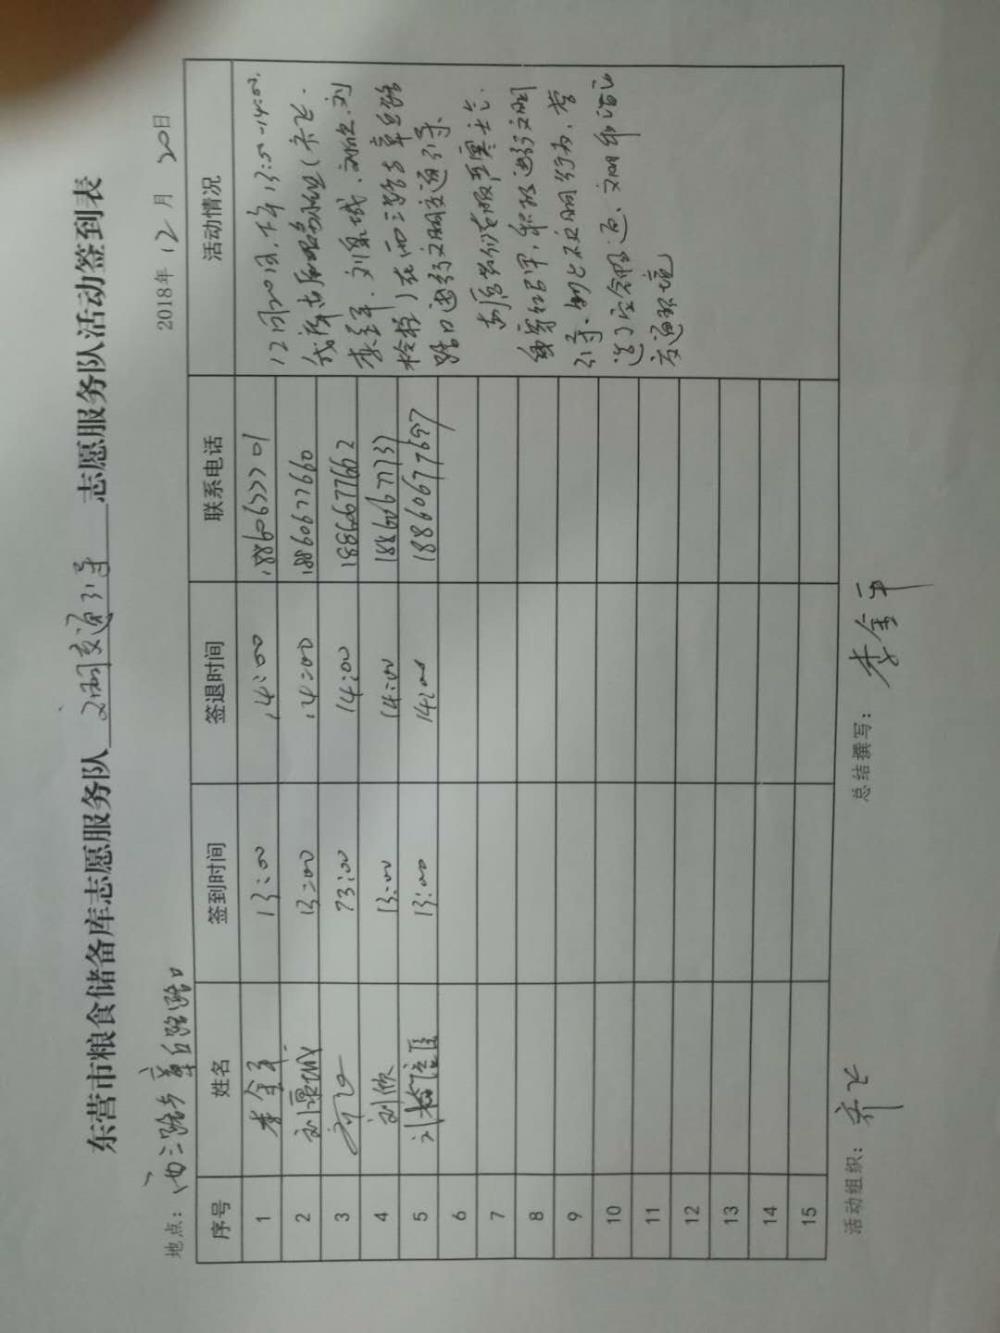 东营市粮食储备库志愿服务队 文明交通引导 志愿服务队活动签到表
地点：西三路与章丘路路口 2018年12月20日
序号 姓名 签到时间 签退时间 联系电话 活动情况
1 李金平 13:00 14:00 18860677701
2 刘景城 13:00 14:00 18860677660
3 13:00 14:00 18860677662
4 刘欣 13:00 14:00 18860677737
5 刘检 13:00 14:00 18860677697
6
7
8
9
10
11
12
13
14
15
12月20日，13:00-14:00，
我库志愿服务队（乔飞、
李金平、刘景城、刘欣、刘
）在西三路与章丘路
路口进行文明交通引导。
志愿者们克服严寒天气，
穿红马甲，积极进行文明
引导，制止不文明行为，营
造了安全畅通、文明
交通环境
活动组织：乔飞 总结撰写：李金平